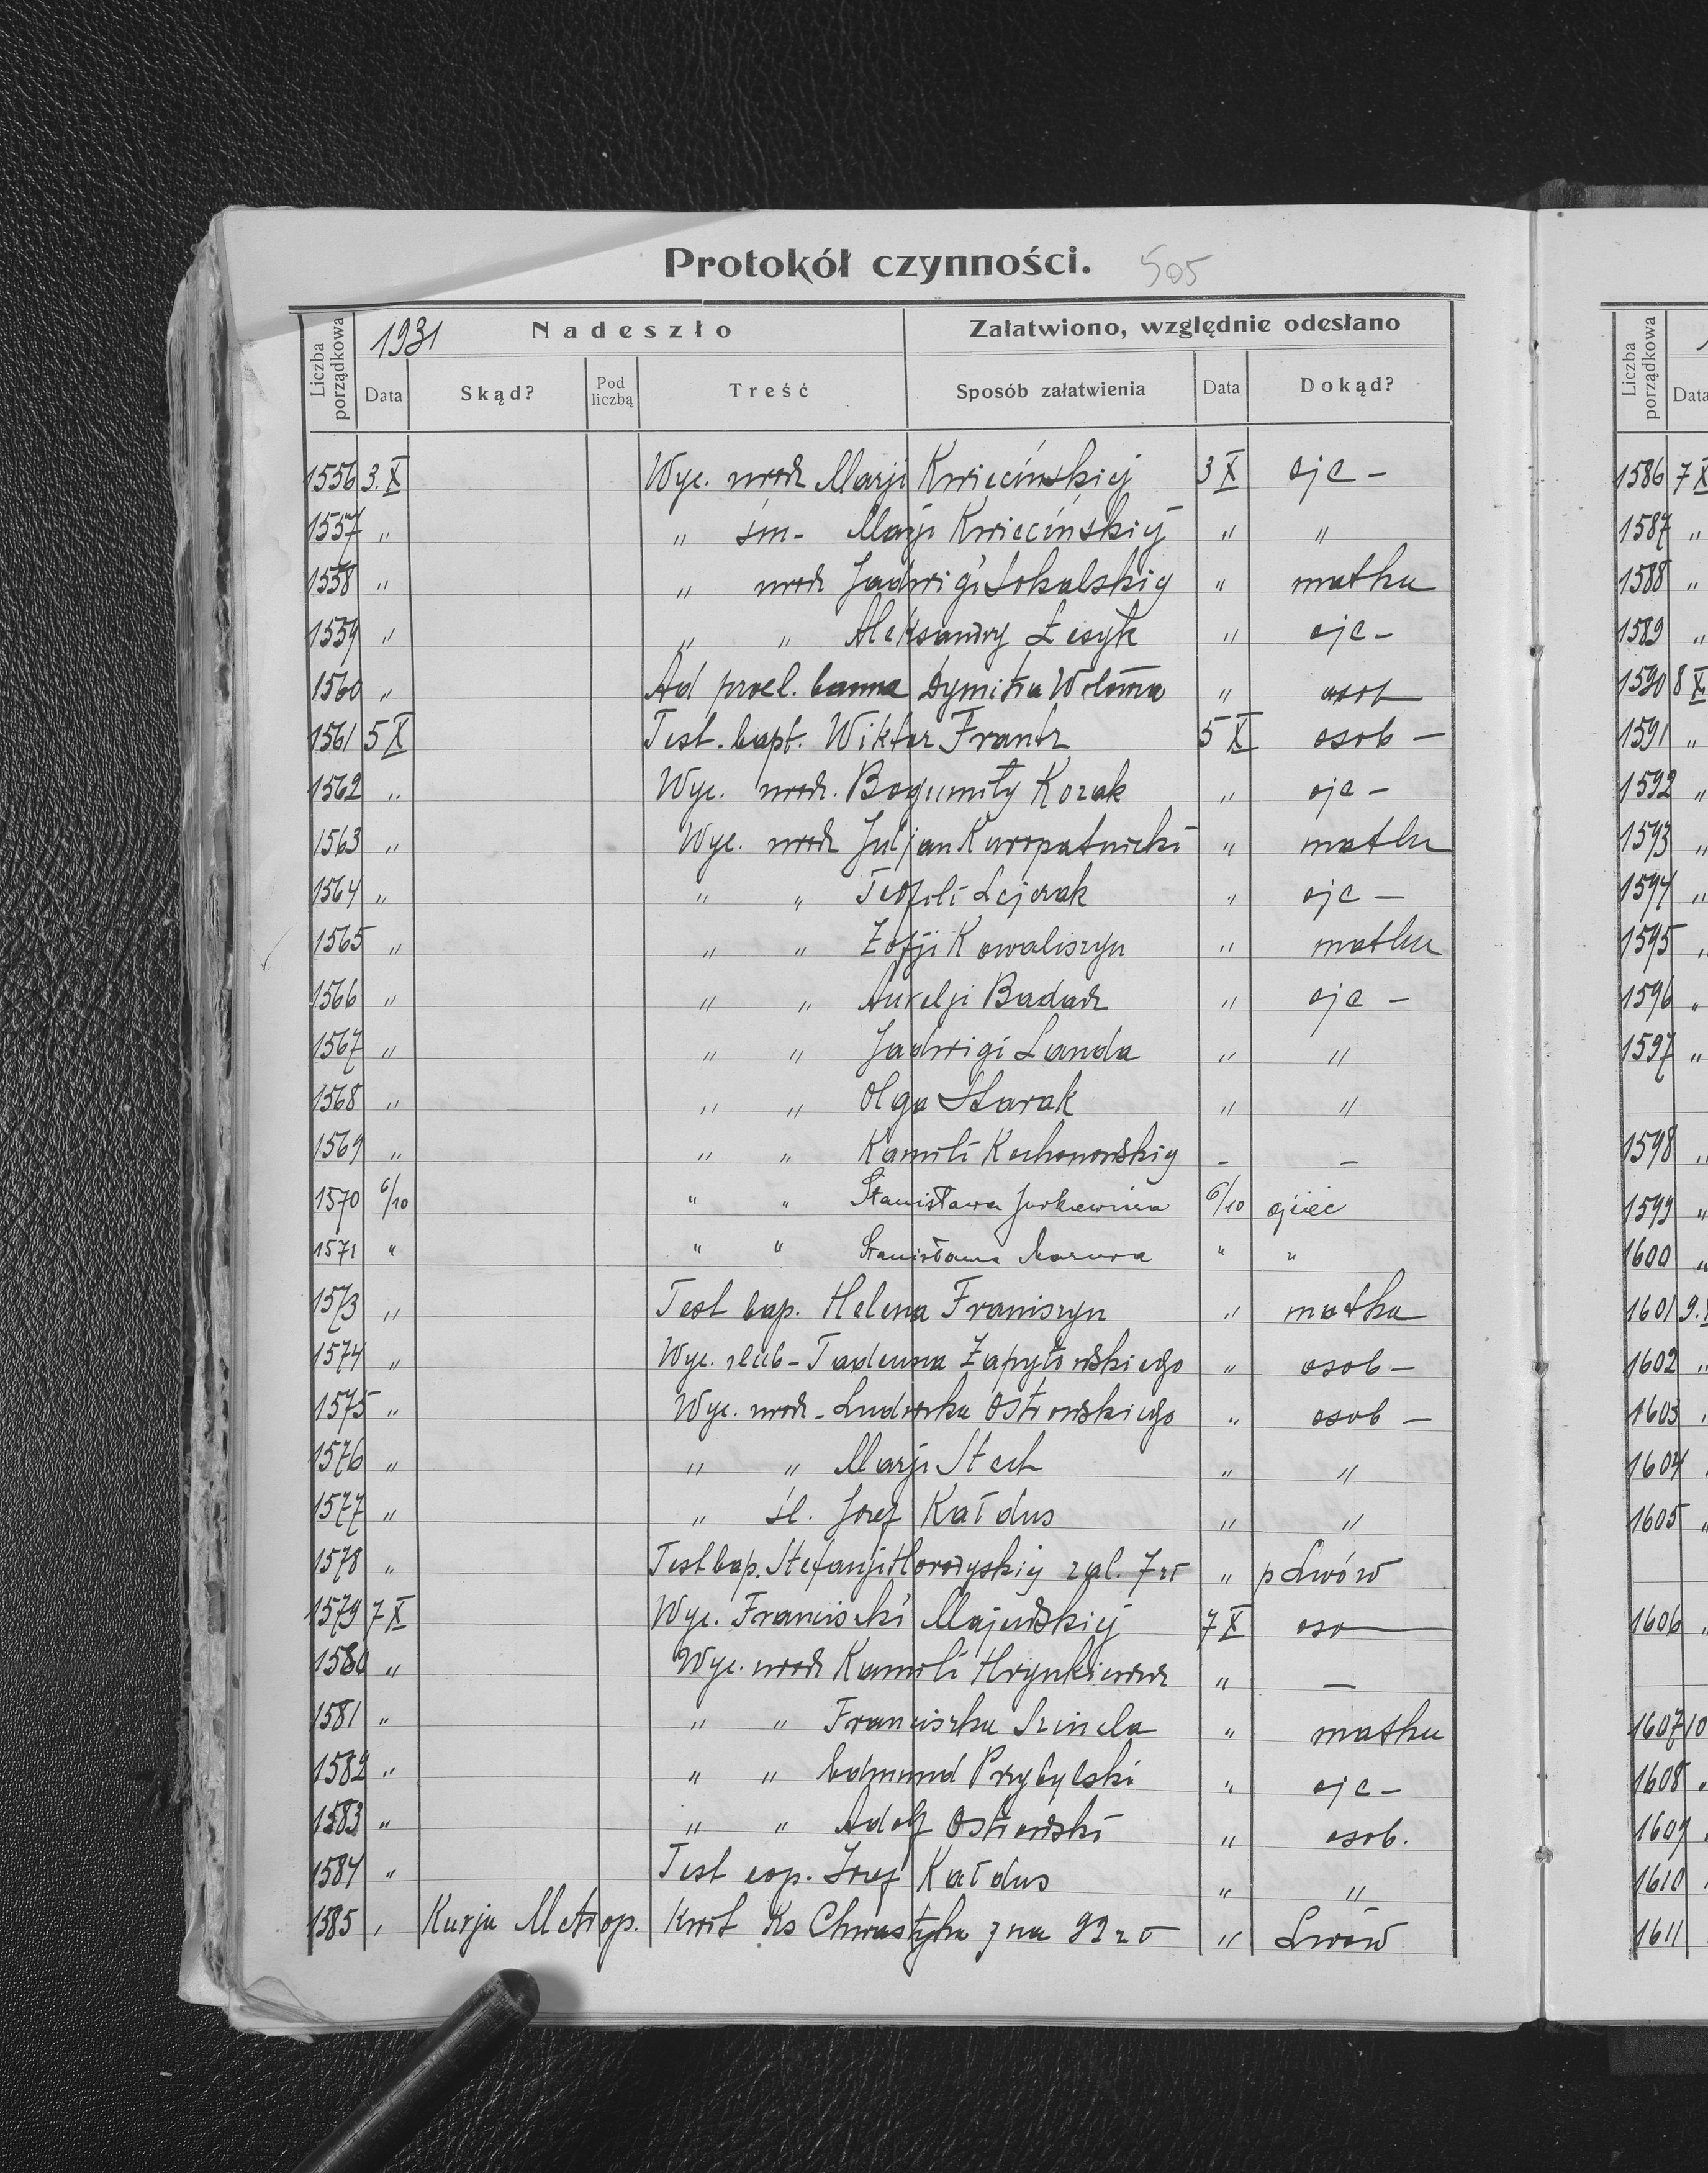 Protokół czynności. 505
Liczba porządkowa 1931 Nadeszło Załatwiono, względnie odesłano
Data Skąd? Pod liczbą Treść Sposób załatwienia Data Dokąd?
1556 3.X Wyc. urodz Marji Kwiecińskiej 3 X ojc -
1557 " " śm- Marji Kwiecińskiej " "
1558 " " urodz Jadwigi Sokalskiej " matka
1559 " " " Aleksandry Łesyk " ojc -
1560 " Ad proel. banna Dymitra " osob
1561 5 X Test. bapt. Wiktor Frantz 5 X osob -
1562 " Wyc. urodz. Bogumiły Kozak " ojc -
1563 " Wyc. urodz Juljan Kuropatnicki " matka
1564 " " " Teofili " ojc -
1565 " " " Zofji Kowaliszyn " matka
1566 " " " Aurelji Badacz " ojc -
1567 " " " Jadwigi Landa " "
1568 " " " Olga " "
1569 " " " Kamili Kochonowskiej - -
1570 6/10 " " Stanisława Jurkiewicza 6/10 ojciec
1571 " " " Stanisława Mazura " "
1573 " Test bap. Helena Franiszyn " matka
1574 " Wyc. ślub - Tadeusza Zapytowskiego " osob -
1575 " Wyc. urodz - Ludwika Ostrowskiego " osob -
1576 " " " Marji Stech " "
1577 " " śl. Józef Kałdus " "
1578 " Test bap. Stefanji zał. 7 zł " p Lwów
1579 7 X Wyc. Franciszki Majewskiej 7 X oso
1580 " Wyc. urodz Kamili Hrynkiewicz " -
1581 " " " Franciszka " matka
1582 " " " Edmund Przybylski " ojc -
1583 " " " Adolf Ostrowski " osob.
1584 " Test cop. Józef Kałdus " "
1585 " Kurja Metrop. Kwit Ks Chwastyka na 92 zł " Lwów
Liczba porządkowa
Data
1586 7 X
1587 "
1588 "
1589 "
1590 8 X
1591 "
1592 "
1593 "
1594 "
1595 "
1596 "
1597 "
1598 "
1599 "
1600 "
1601 9.
1602 "
1603
1604
1605 "
1606
1607 10
1608
1609
1610
1611